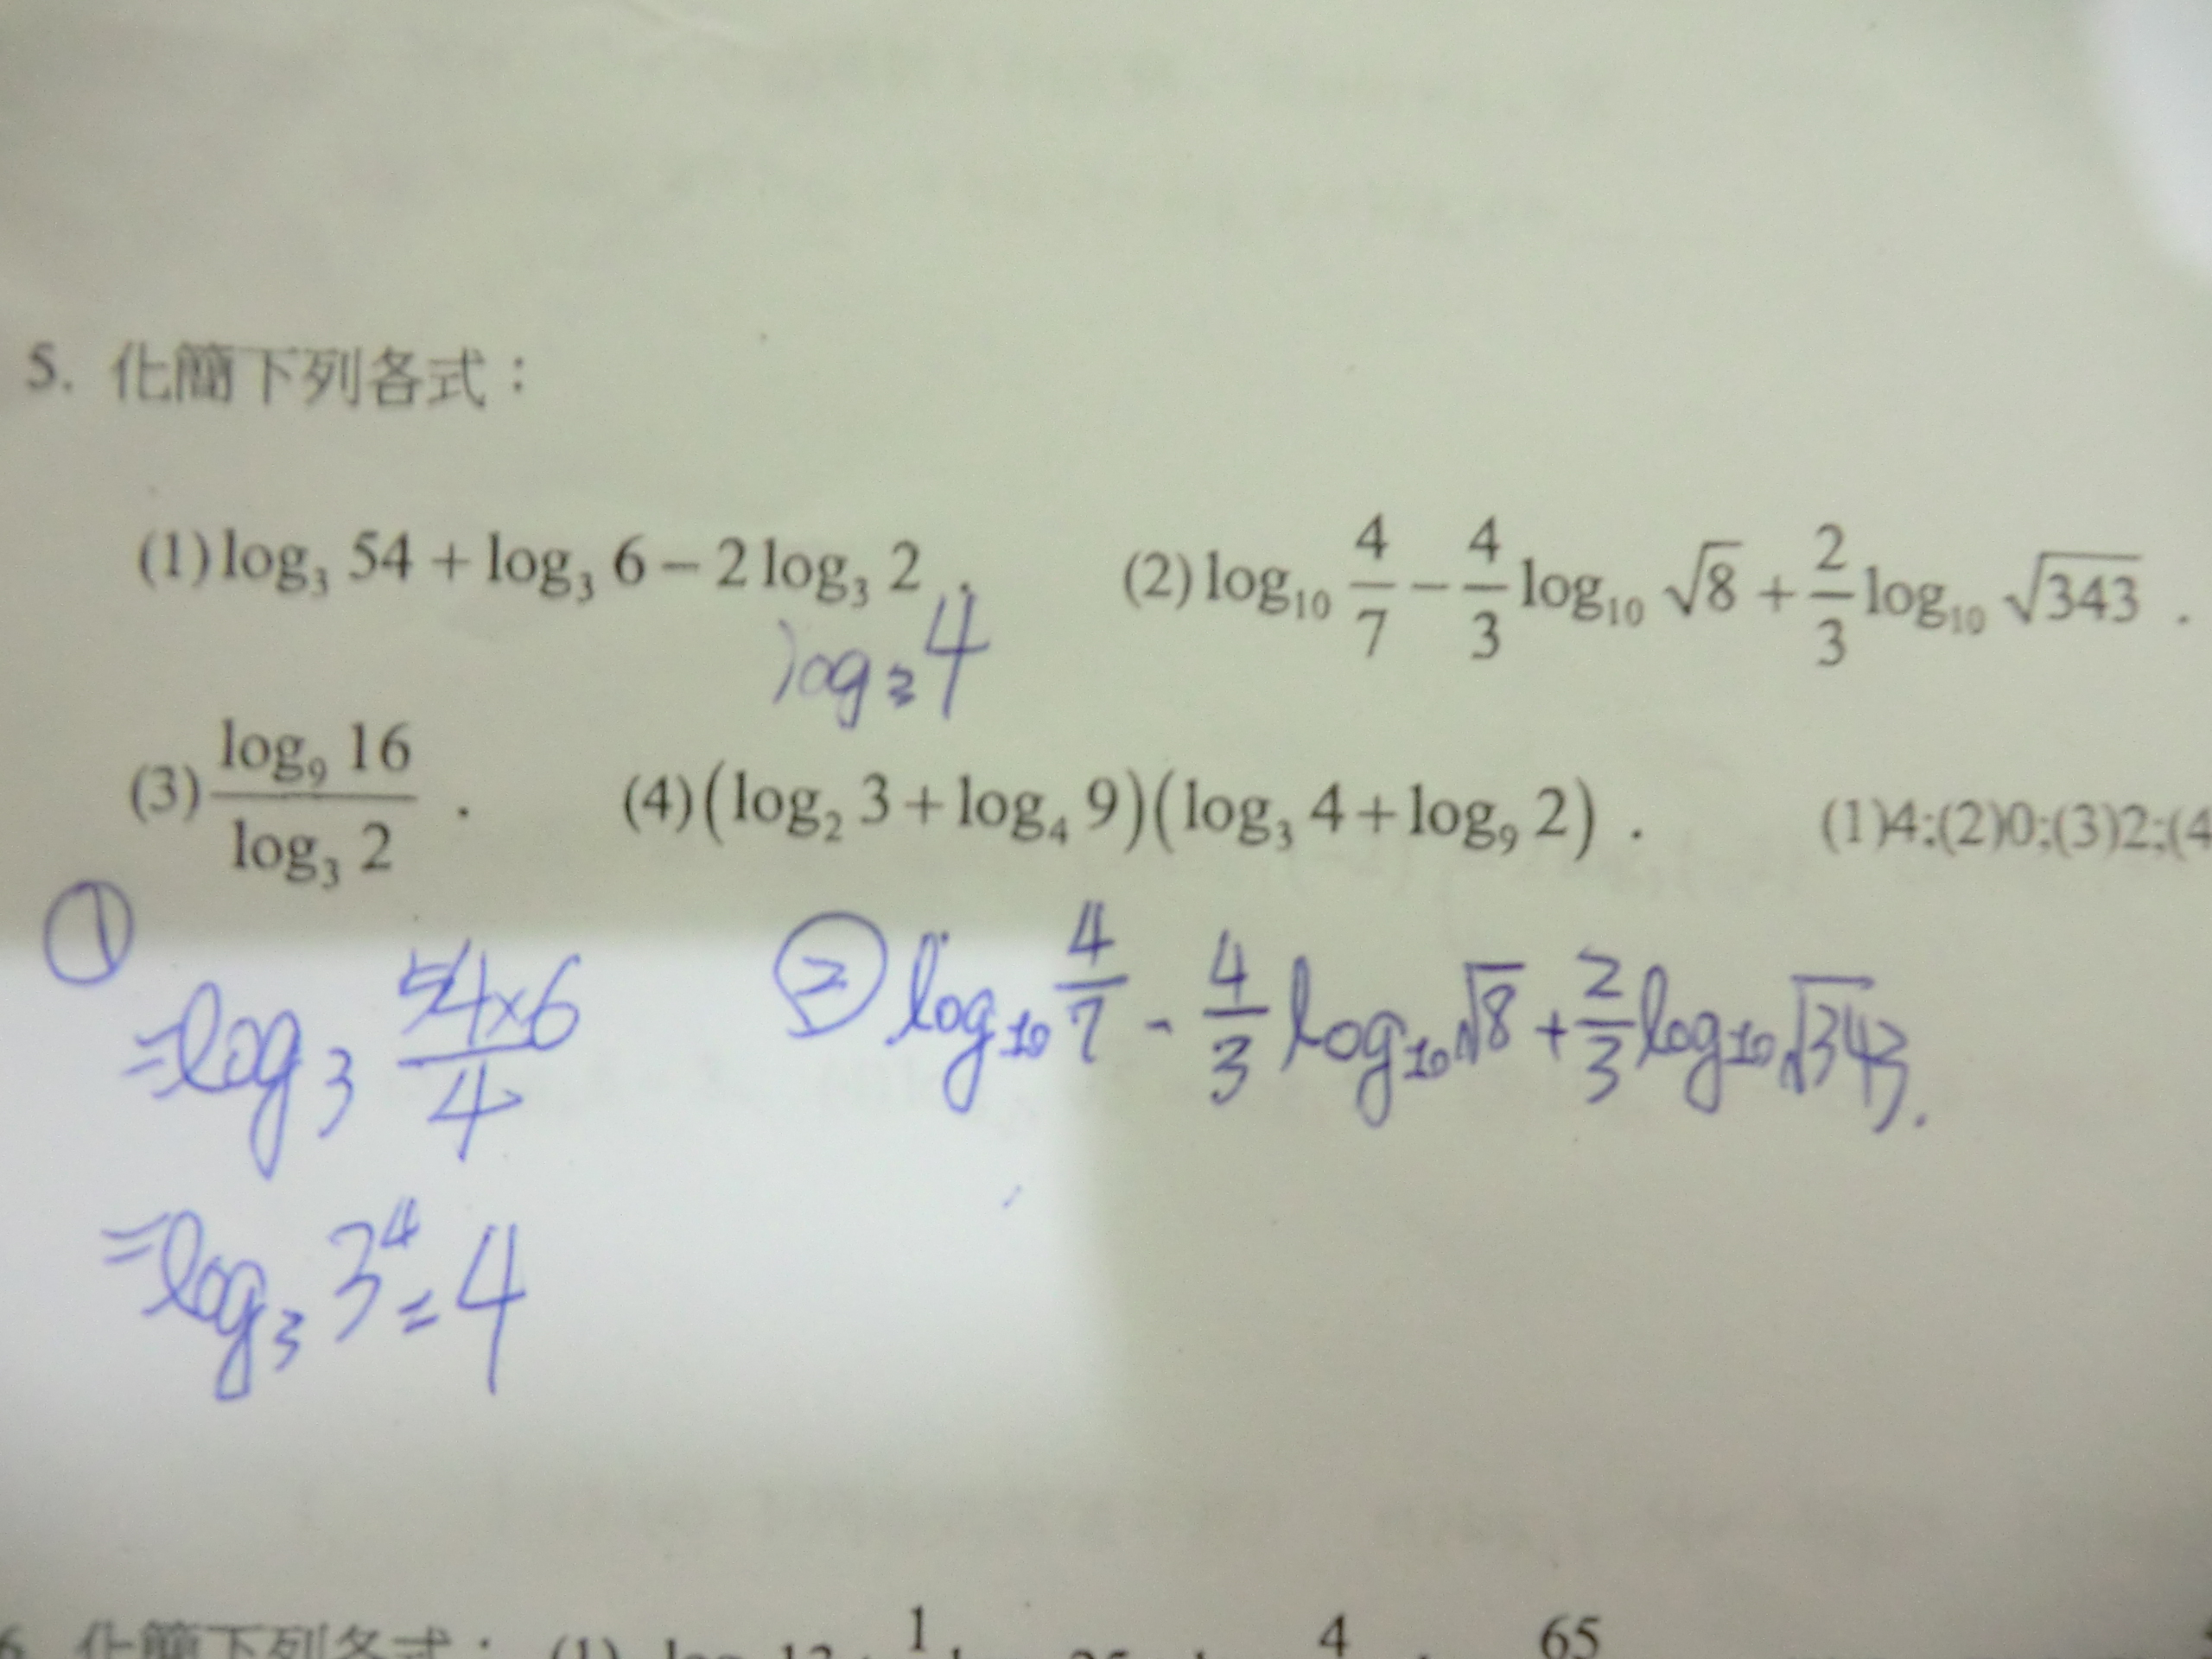 5. 化簡下列各式：
(1) log₃ 54 + log₃ 6 − 2 log₃ 2 . (2) log₁₀ 4/7 − 4/3 log₁₀ √8 + 2/3 log₁₀ √343 .
log₃ 4
(3) log₉ 16 / log₃ 2 . (4) (log₂ 3 + log₄ 9)(log₃ 4 + log₉ 2) . (1)4;(2)0;(3)2;(4
① = log₃ 54×6/4
② log₁₀ 4/7 − 4/3 log₁₀ √8 + 2/3 log₁₀ √343.
= log₃ 3⁴ = 4
6. 化簡下列各式： (1)